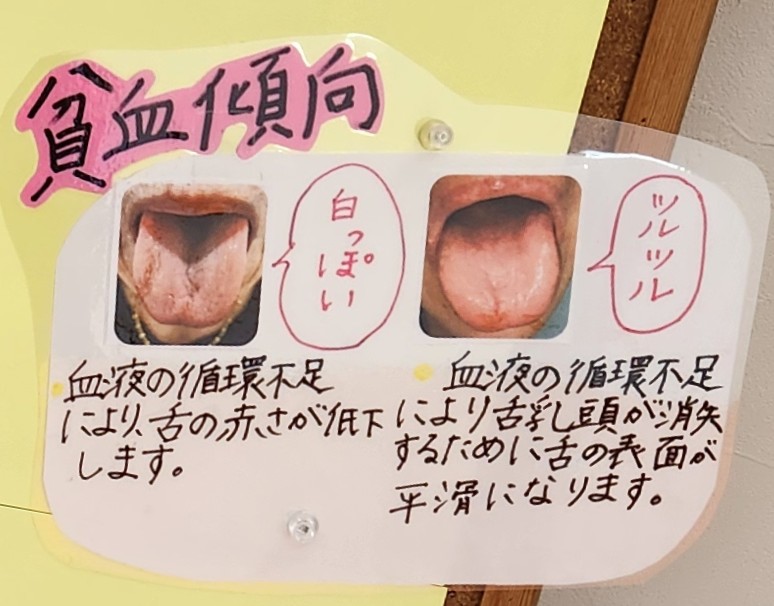 貧血傾向
白っぽい
ツルツル
血液の循環不足
により、舌の赤さが低下
します。
血液の循環不足
により舌乳頭が消失
するために舌の表面が
平滑になります。